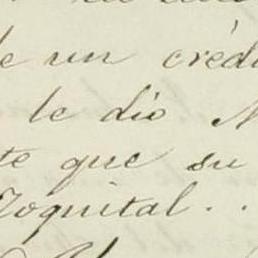 de un crédi
le dio
te que su
Zoquital . .